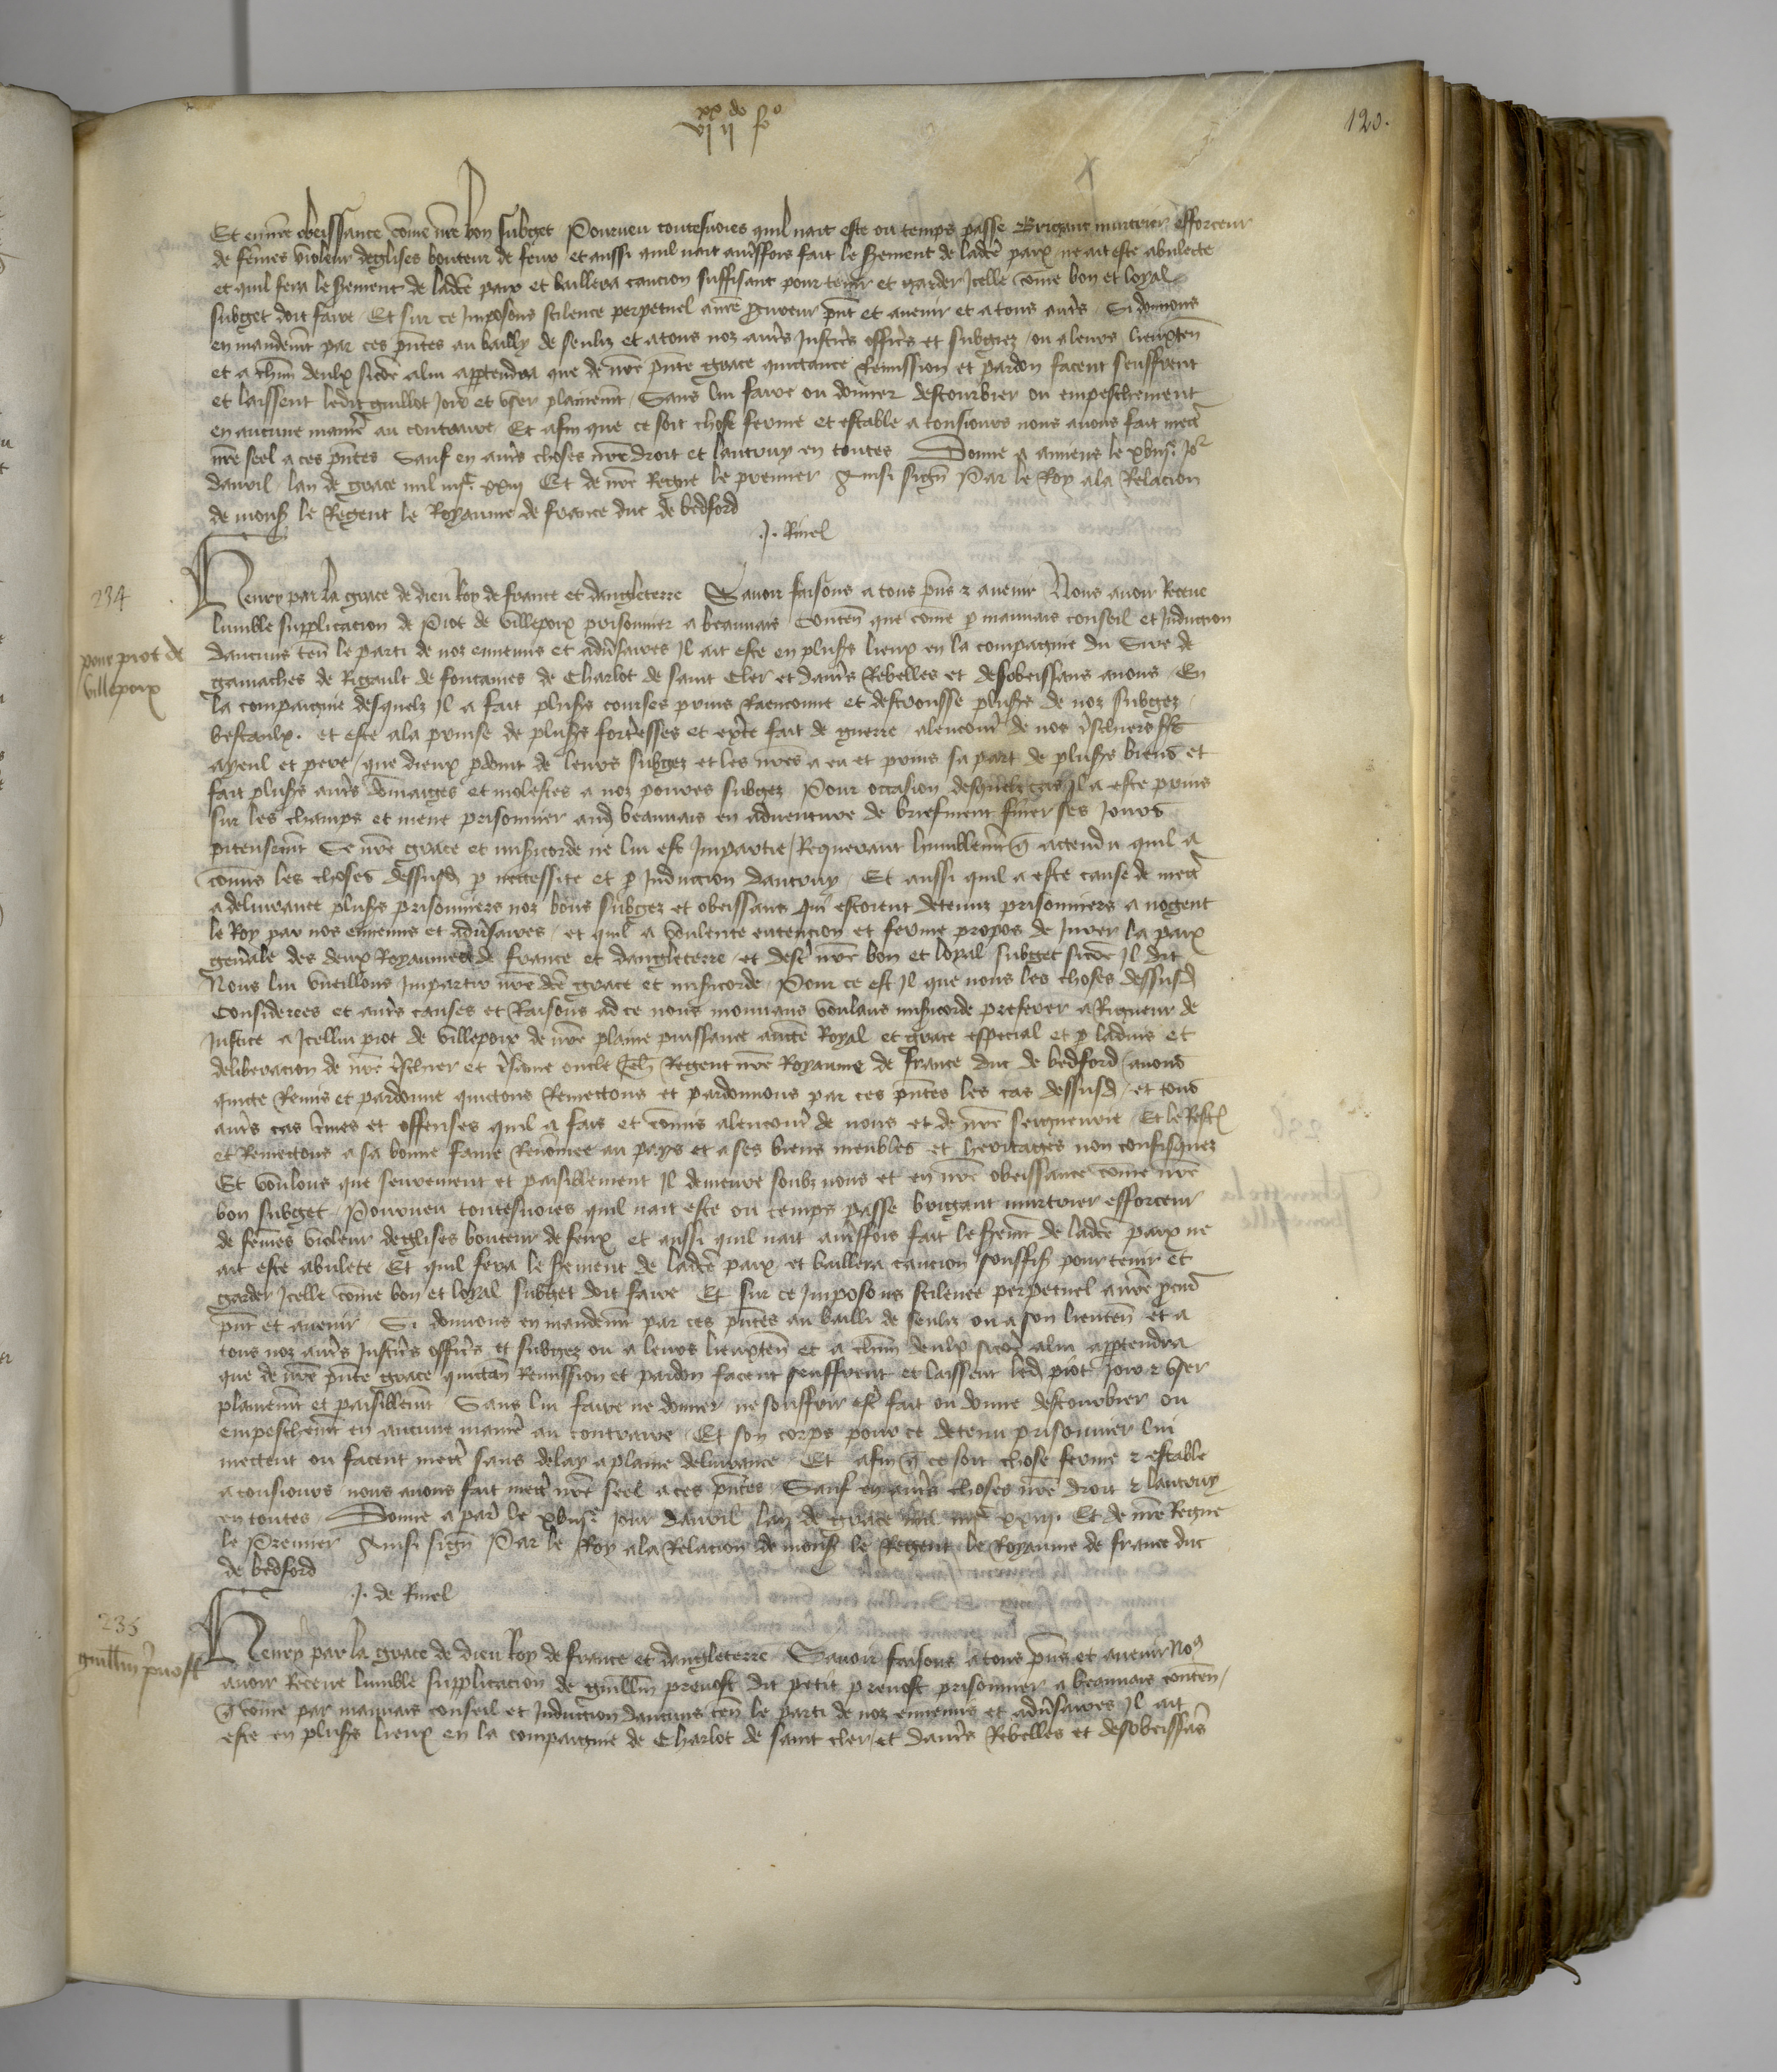 vi xx ii do fo
120.
Et en nre obeissance come nre bon subget Pourveu toutesuoies quil nait este ou temps passe Brigant murtrier efforceur
de femes violeur deglises bouteur de feux et aussi quil nait autresfois fait le serement de ladicte paix ne ait este abulecte
et quil fera le serement de ladicte paix et baillera caucion suffisant pour tenir et garder Icelle come bon et loyal
subget doit faire Et sur ce Imposons scilence perpetuel a nre procureur pnt et auenir et a tous autres Si donnons
en mandemt par ces pntes au bailly de senliz et a tous noz autres Justiciers officiers et subgiez ou a leurs lieuxten
et a chun deulx sicome a lui appartendra que de nre pnte grace quictance Remission et pardon facent seuffrent
et laissent ledit guillot Joir et vser plainemt Sans lui faire ou donner destourbier ou empeschement
en aucune maniere au contraire Et afin que ce soit chose ferme et estable a tousiours nous auons fait mectre
nre seel a ces pntes Sauf en autres choses nre droit et lautruy en toutes Donne a amiens le xviije Jor
dauril lan de grace mil iiijc xxiij Et de nre Regne le premier Ainsi signe Par le Roy a la Relacion
de mons le Regent le Royaume de france duc de bedford
.J. Rinel
234
pour piot de
villepoix
Henry par la grace de dieu Roy de france et dangleterre Sauoir faisons a tous pns & auenir Nous auoir Receue
lumble supplicacion de Piot de villepoix prisonnier a beauuais Conten que come p mauuais conseil et Induction
daucuns ten le parti de noz ennemis et aduersaires Il ait este en plusrs lieux en la compaignie du Sire de
gamaches de Rigault de fontaines de Charlot de saint Cler et dautres Rebelles et desobeissans a nous En
la compaignie desquelz Il a fait plusrs courses prins Raenconne et destrousse plusrs de noz subgez
bestaulx. et este a la prinse de plusrs forteresses et exerce fait de guerre alencontre de nos treschiers srs
ayeul et pere que dieux pdoint de leurs subgez et les nres a eu et prins sa part de plusrs biens et
fait plusrs autres domaiges et molestes a noz poures subgez Pour occasion desquelz cas Il a este prins
sur les champs et mene prisonnier aud beauuais en aduenture de briefment finer ses Jours
piteusemt Se nre grace et misericorde ne lui est Impartie Requerant humblemt q attendu quil a
comis les choses dessusd p necessite et p Induction dautruy Et aussi quil a este cause de mectre
a deliurance plusrs prisonniers noz bons subgez et obeissans qui estoient detenuz prisonniers a nogent
le Roy par nos ennemis et aduersaires et quil a voulente entencion et ferme propos de Jurer la paix
generale des deux Royaumes de france et dangleterre et destre nre bon et loyal subget sicome Il dit
Nous lui vueillons Impartir nre dicte grace et misericorde Pour ce est Il que nous les choses dessusd
Considerees et autres causes et Raisons ad ce nous mouuans voulans misericorde preferer a Rigueur de
Justice a Icellui piot de villepoix de nre plaine puissance auctorite Royal et grace especial et p laduis et
deliberacion de nre treschier et tresame oncle Jeh Regent nre Royaume de france duc de bedford auons
quicte Remis et pardonne quictons Remectons et pardonnons par ces pntes les cas dessusd et tous
autres cas crimes et offenses quil a fais et comis alencontre de nous et de nre seigneurie Et le Rest
et Remectons a sa bonne fame Renomee au pays et a ses biens meubles et heritages non confisquez
Et voulons que seurement et paisiblement Il demeure soubz nous et en nre obeissance come nre
bon subget Pourueu toutesuoies quil nait este ou temps passe brigant murtrier efforceur
de femes violeur deglises bouteur de feux et aussi quil nait autresfois fait le seremt de ladicte paix ne
ait este abulete Et quil fera le serement de ladicte paix et baillera caucion souffis pour tenir et
garder Icelle come bon et loyal subget doit faire Et sur ce Imposons scilence perpetuel a nre pcur
pnt et auenir Si donnons en mandemt par ces pntes au bailli de senliz ou a son lieuten et a
tous noz autres Justiciers officiers et subgez ou a leurs lieuxten et a chun deulx sicome a lui appartendra
que de nre pnte grace quictan Remission et pardon facent seuffrent et laissent led piot Joir & vser
plainemt et paisiblemt Sans lui faire ne donner ne souffrir estre fait ou donne destourbier ou
empeschemt en aucune maniere au contraire Et son corps pour ce detenu prisonnier lui
mectent ou facent mectre sans delay a plaine deliurance Et afin q ce soit chose ferme & estable
a tousiours nous auons fait mectre nre seel a ces pntes Sauf en autres choses nre droit & lautruy
en toutes Donne a paris le xviije jour dauril lan de grace mil iiijc xxiij. Et de nre Regne
le Premier Ainsi signe Par le Roy a la Relacion de mons le Regent le Royaume de france duc
de bedford
.J. de Rinel
235
guillm preuost
Henry par la grace de dieu Roy de france et dangleterre Sauoir faisons a tous pns et auenir No9
auoir Receue lumble supplicacion de guillm preuost dit petit preuost prisonnier a beauuais conten
q come par mauuais conseil et Induction daucuns ten le parti de noz ennemis et aduersaires Il ait
este en plusrs lieux en la compaignie de Charlot de saint cler et dautres Rebelles et desobeissas